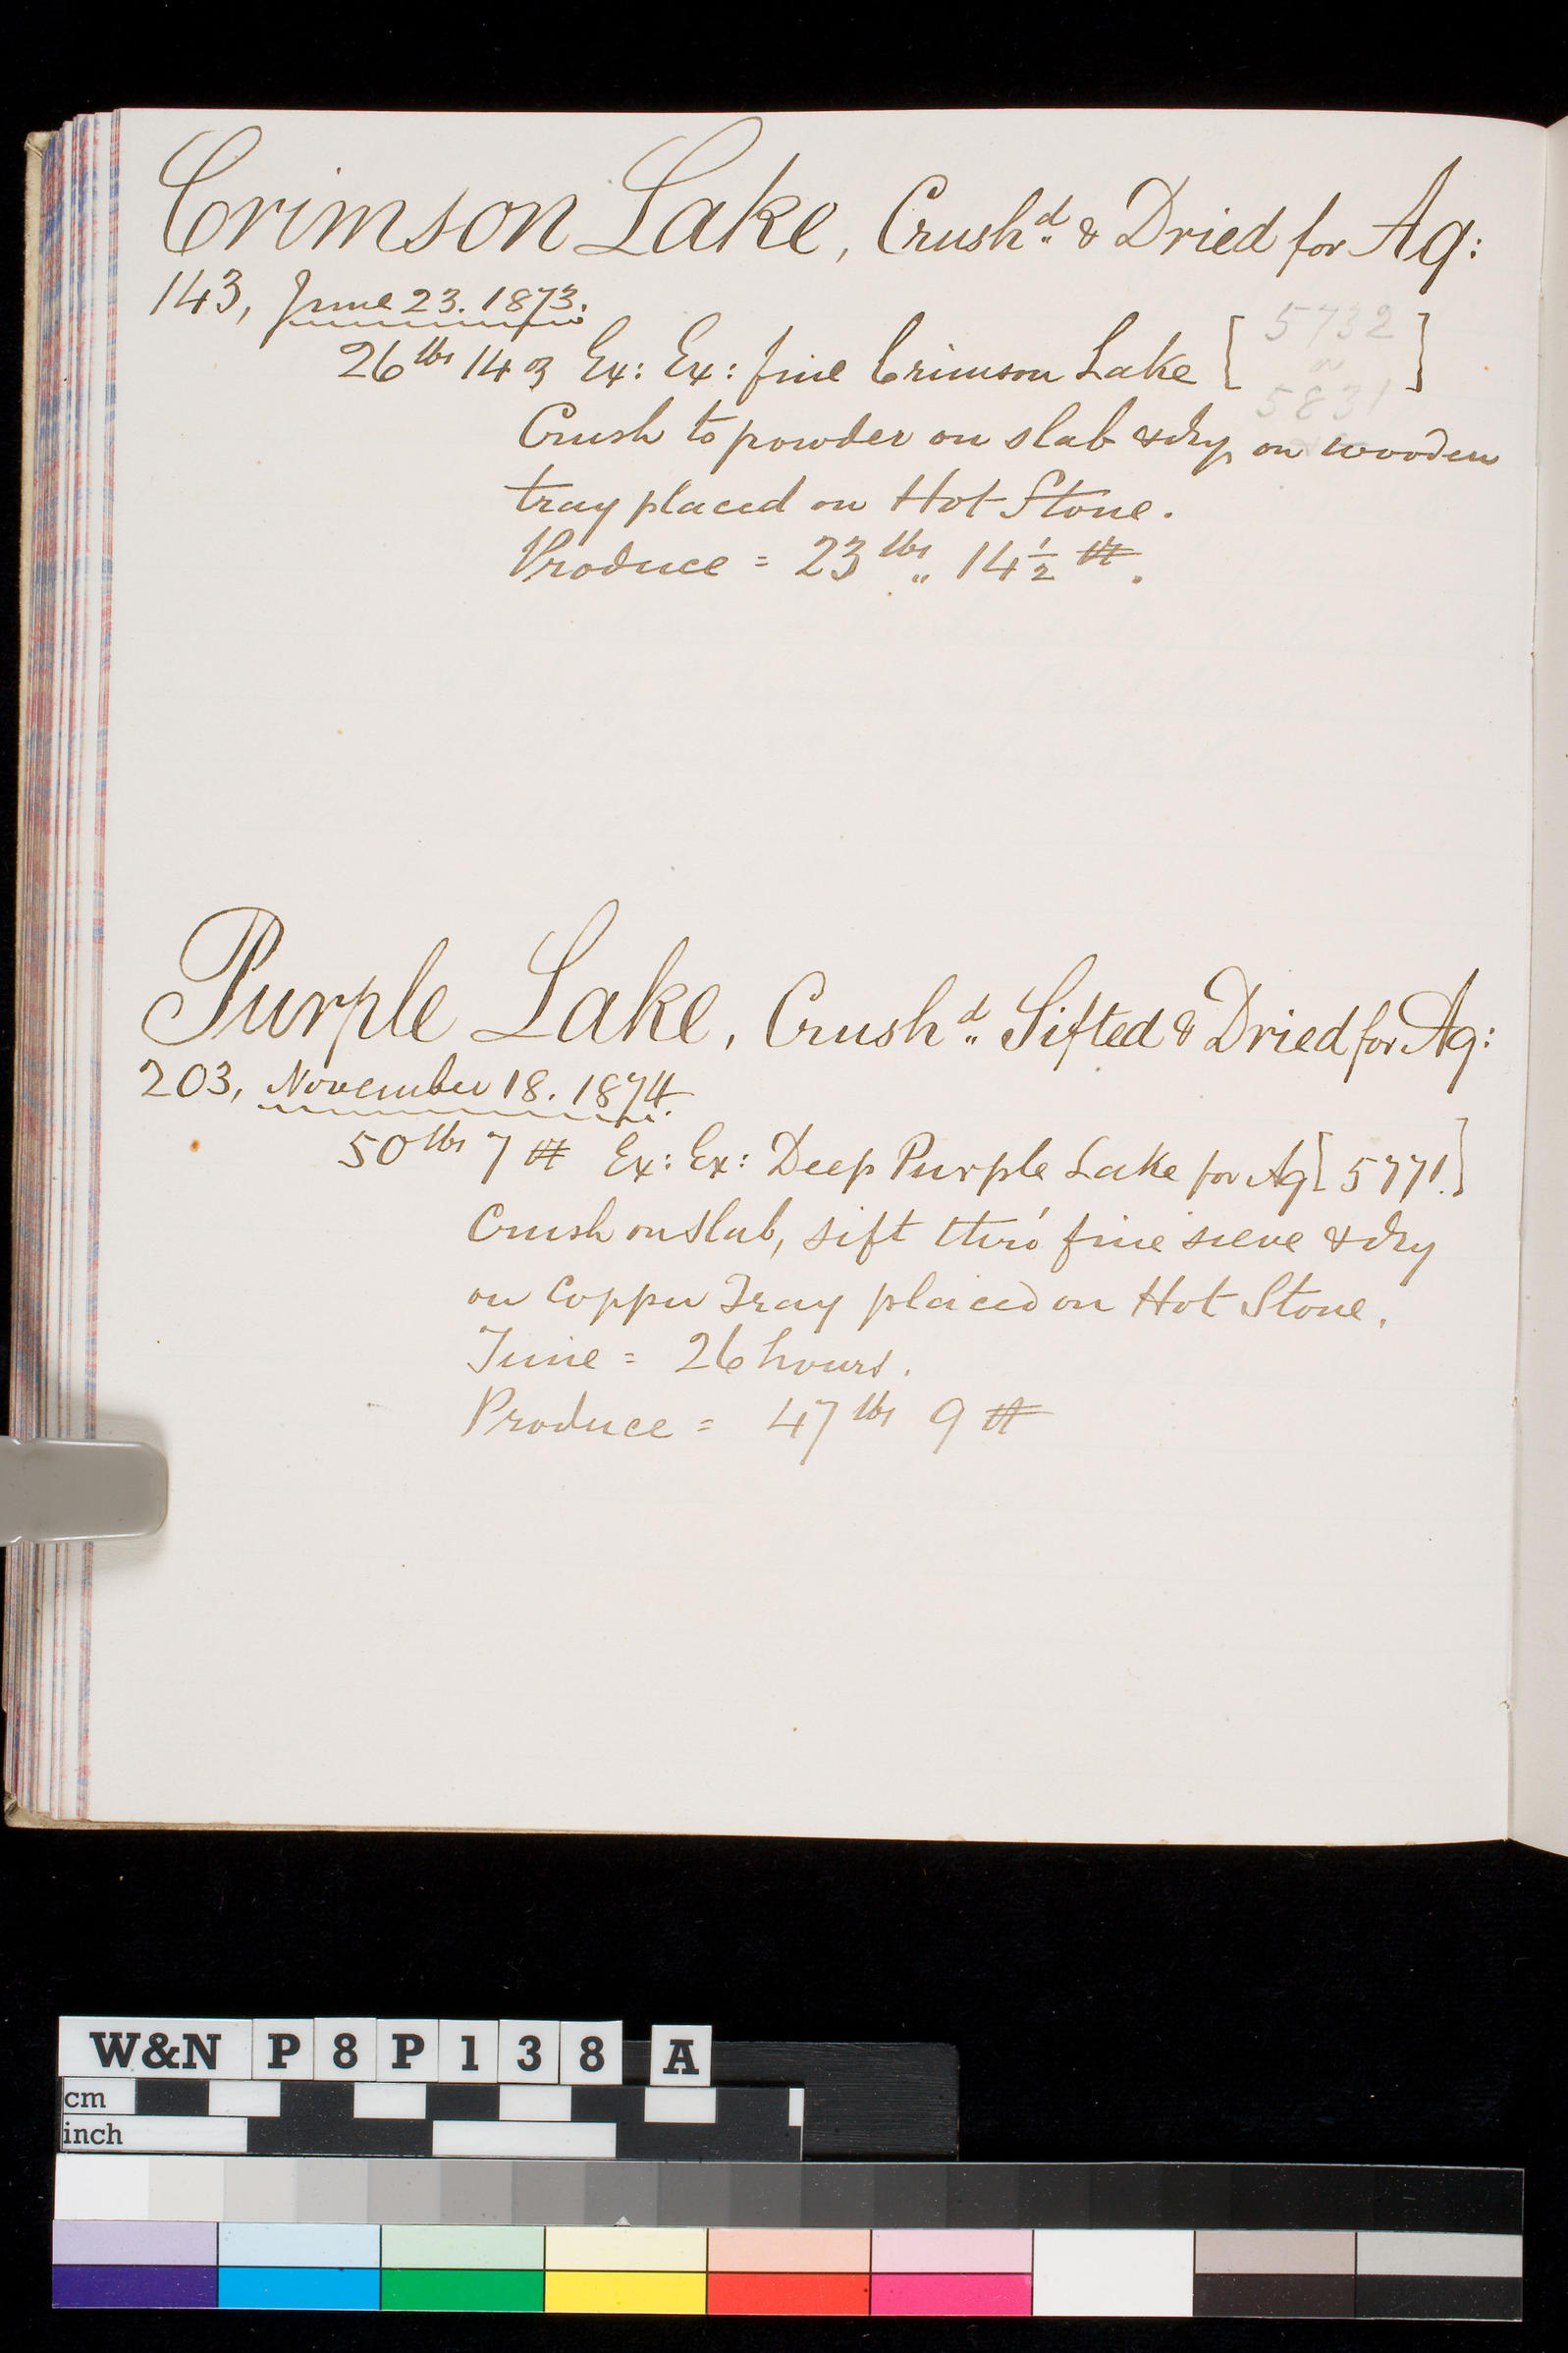 Crimson Lake, Crush'd & Dried for Aq:
143, June 23. 1873.
26 lbs 14 oz Ex: Ex: fine Crimson Lake [ 5732 or 5831 ]
Crush to powder on slab & dry on wooden
tray placed on Hot Stone.
Produce = 23 lbs 14 1/2 oz.
Purple Lake, Crush'd Sifted & Dried for Aq:
203, November 18. 1874.
50 lbs 7 oz Ex: Ex: Deep Purple Lake for Aq [ 5771. ]
Crush on slab, sift thro' fine sieve & dry
on Copper Tray placed on Hot Stone.
Time = 26 hours.
Produce = 47 lbs 9 oz
W&N P8P138 A
cm
inch